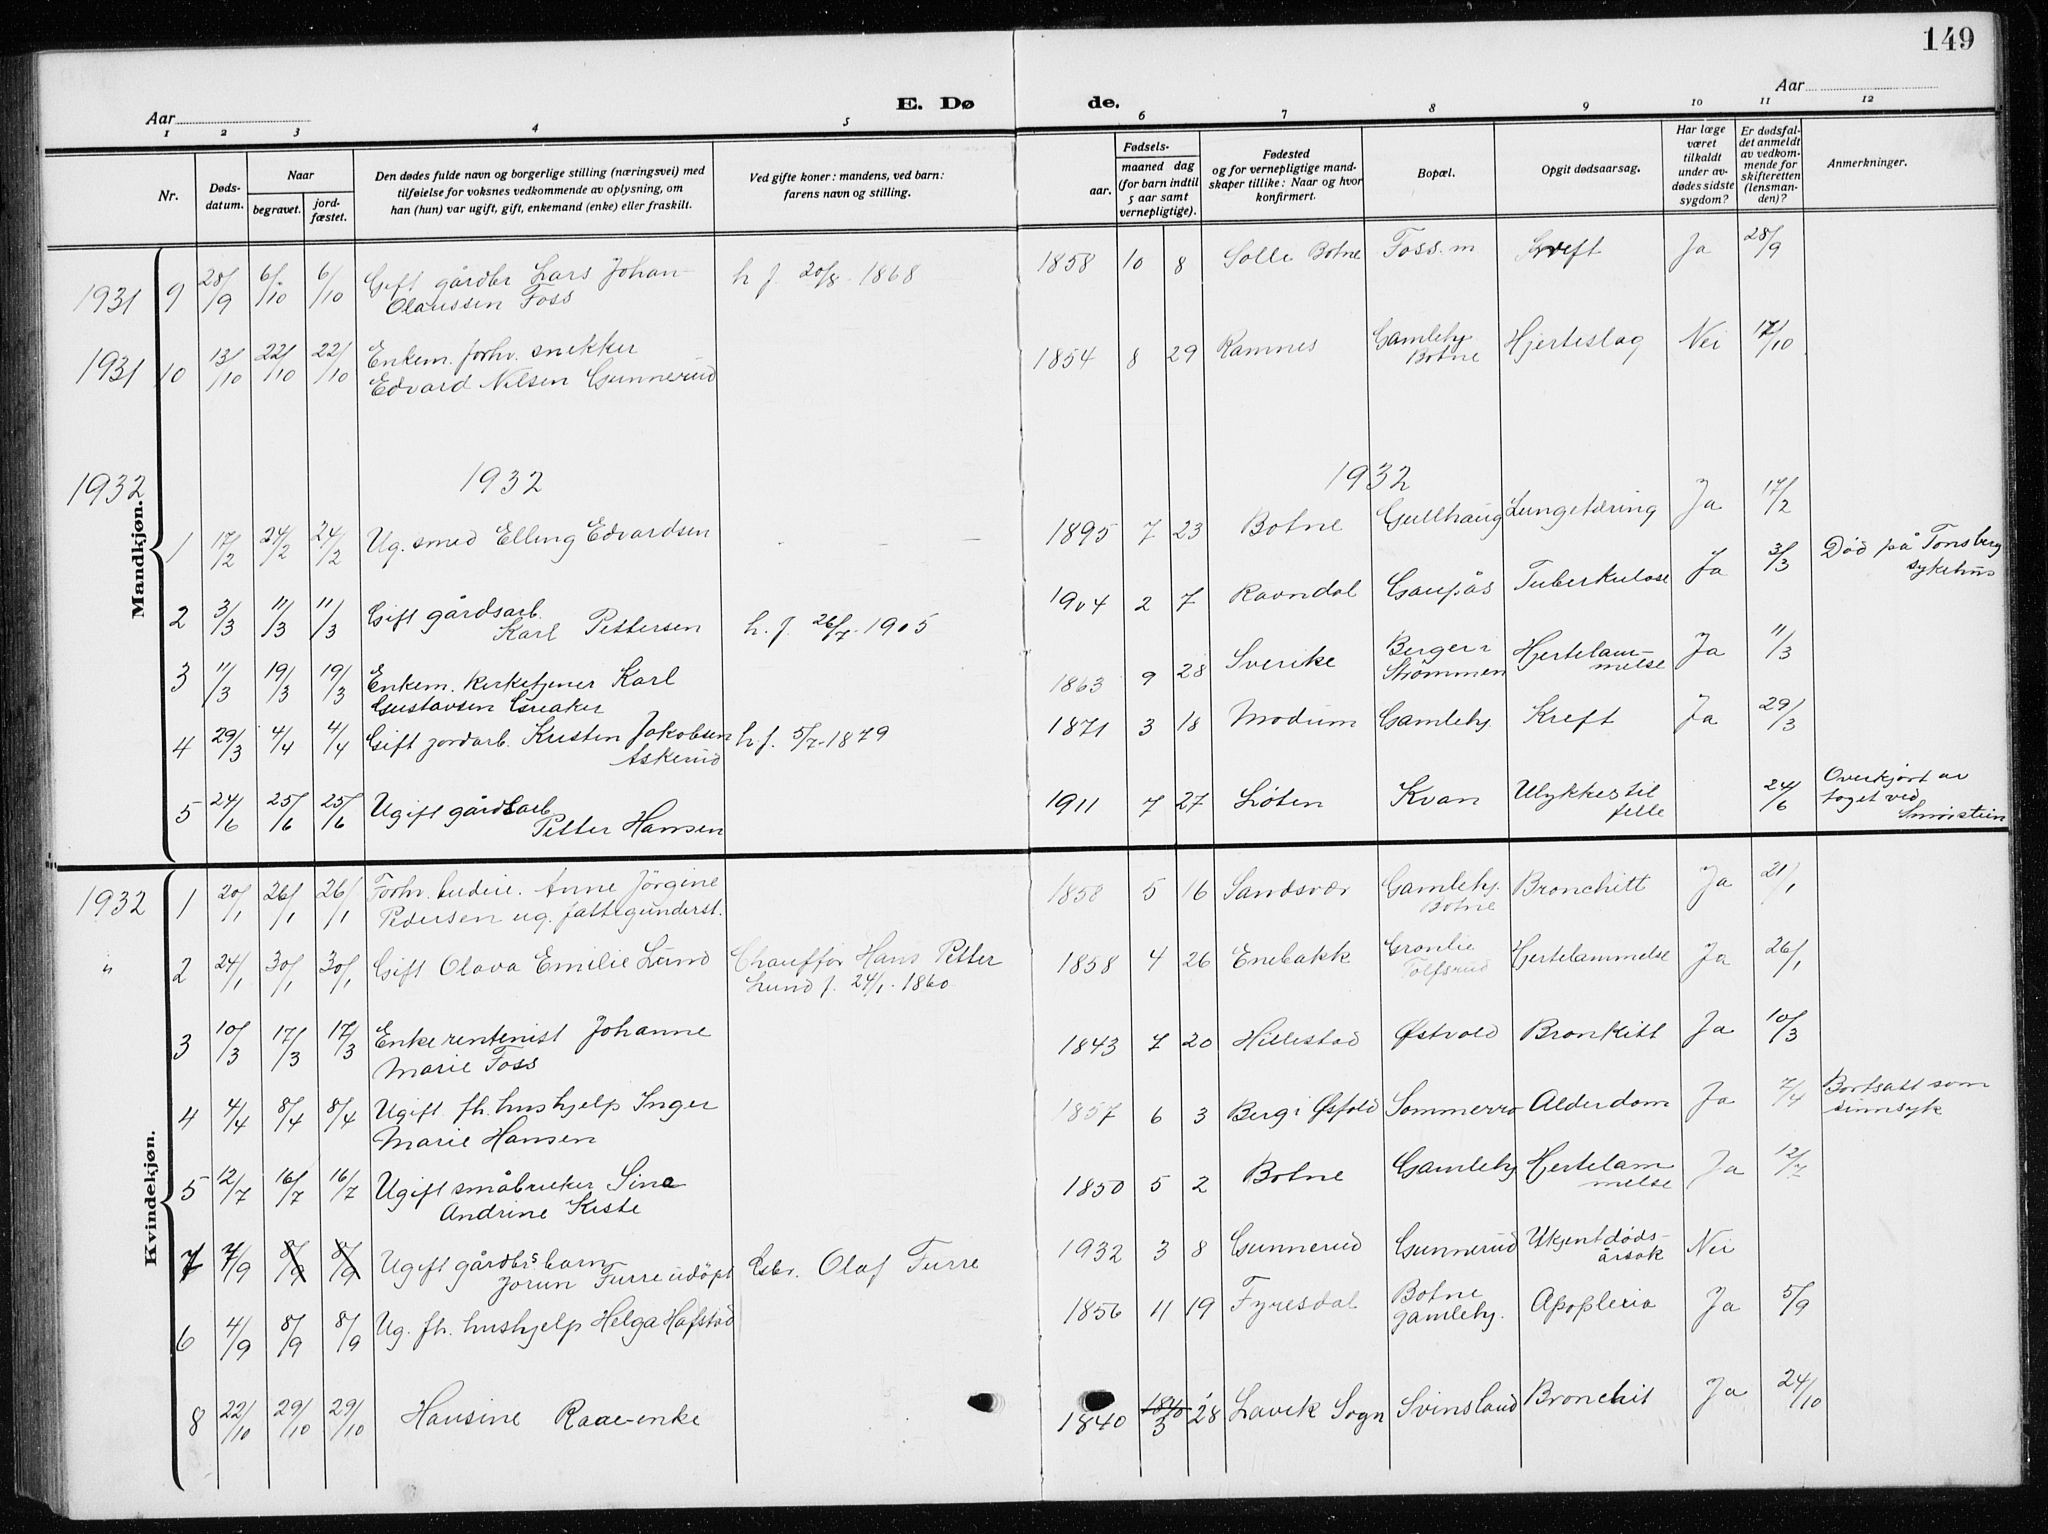 149
Aar
E. Døde.
Aar
1 2 3 4 5 6 7 8 9 10 11 12
Nr.
Døds-
datum.
Naar
begravet.
jord-
fæstet.
Den dødes fulde navn og borgerlige stilling (næringsvei) med
tilføielse for voksnes vedkommende av oplysning, om
han (hun) var ugift, gift, enkemand (enke) eller fraskilt.
Ved gifte koner: mandens, ved barn:
farens navn og stilling.
Fødsels-
aar.
maaned dag
(for barn indtil
5 aar samt
vernepligtige).
Fødested
og for vernepligtige mand-
skaper tillike: Naar og hvor
konfirmert.
Bopæl.
Opgit dødsaarsag.
Har læge
været
tilkaldt
under av-
dødes sidste
sygdom?
Er dødsfal-
det anmeldt
av vedkom-
mende for
skifteretten
(lensman-
den)?
Anmerkninger.
Mandkjøn.
1931 9 28/9 6/10 6/10 Gift gårdbr Lars Johan- h f. 20/8-1868 1858 10 8 Solli Botne Foss.m Kreft Ja 28/9
Olaussen Foss
1931 10 13/10 22/10 22/10 Enkem. forhv. snekker 1854 8 29 Ramnes Gamleby Hjerteslag Nei 17/10
Edvard Nilsen Gunnerud Botne
1932 1932 1932
1 17/2 24/2 24/2 Ug. smed Elling Edvardsen - - - 1895 7 23 Botne Gullhaug Lungetæring Ja 17/2
2 3/3 11/3 11/3 Gift gårdsarb. h. f. 26/7-1905 1904 2 7 Ravndal Gaupås Tuberkulose Ja 3/3 Død på Tonsberg
Karl Pettersen sykehus
3 11/3 19/3 19/3 Enkem. kirketjener Karl 1863 9 28 Sverike Berger i Hjertelam- Ja 11/3
Gustavsen Greaker Strømmen melse
4 29/3 4/4 4/4 Gift jordarb. Kristen Jakobsen h. f. 5/7-1879 1871 3 18 Modum Gamleby. Kreft Ja 29/3
Askerud
5 24/6 25/6 25/6 Ugift gårdsarb 1911 7 27 Løten Kvan Ulykkestil 24/6 Overkjørt av
Petter Hansen felle toget ved
Smørstein
Kvindekjøn.
1932 1 20/1 26/1 26/1 Forhv. budeie. Anne Jörgine 1858 5 16 Sandsvær Gamleby. Bronchitt Ja 21/1
Pedersen ug. fattigunderst. Botne
" 2 24/1 30/1 30/1 Gift Olava Emilie Lund Chauffør Hans Petter 1858 4 26 Enebakk Grønlie Hjertelammelse Ja 26/1
Lund f. 24/1-1860 Tolfsrud
3 10/3 17/3 17/3 Enke rentenist Johanne 1843 7 20 Hillestad Østvold Bronkitt Ja 10/3
Marie Foss
4 4/4 8/4 8/4 Ugift fh. hushjelp Inger 1857 6 3 Berg i Øsfold Sommerro Alderdom Ja 7/4 Bortsatt som
Marie Hansen sinnsyk
5 12/7 16/7 16/7 Ugift småbruker Sina 1850 5 2 Botne Gamleby Hjertelam Ja 12/7
Andrine Kiste melse
7 7/9 8/9 8/9 Ugift gårdbrs barn Gbr. Olaf Furre 1932 3 8 Gunnerud Gunnerud Ukjent døds- Nei
Jorun Furre udöpt årsak
6 4/9 8/9 8/9 Ug. fh. hushjelp Helga Hafstad 1856 11 19 Fyresdal Botne Apoplexia Ja 5/9
gamleby.
8 22/10 29/10 29/10 Hansine Raae-enke 1840 1840 3 28 Lavik Sogn Svinsland Bronchit Ja 24/10